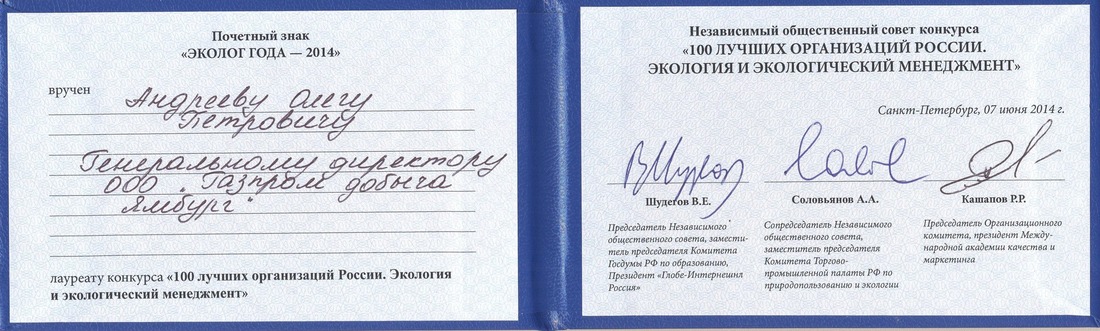 Почетный знак
«ЭКОЛОГ ГОДА — 2014»
вручен
Андрееву Олегу
Петровичу
Генеральному директору
ООО „Газпром добыча
Ямбург“
лауреату конкурса «100 лучших организаций России. Экология
и экологический менеджмент»
Независимый общественный совет конкурса
«100 ЛУЧШИХ ОРГАНИЗАЦИЙ РОССИИ.
ЭКОЛОГИЯ И ЭКОЛОГИЧЕСКИЙ МЕНЕДЖМЕНТ»
Санкт-Петербург, 07 июня 2014 г.
Шудегов В.Е.
Председатель Независимого
общественного совета, замести-
тель председателя Комитета
Госдумы РФ по образованию,
Президент «Глобе-Интернешнл
Россия»
Соловьянов А.А.
Сопредседатель Независимого
общественного совета,
заместитель председателя
Комитета Торгово-
промышленной палаты РФ по
природопользованию и экологии
Кашапов Р.Р.
Председатель Организационного
комитета, президент Между-
народной академии качества и
маркетинга